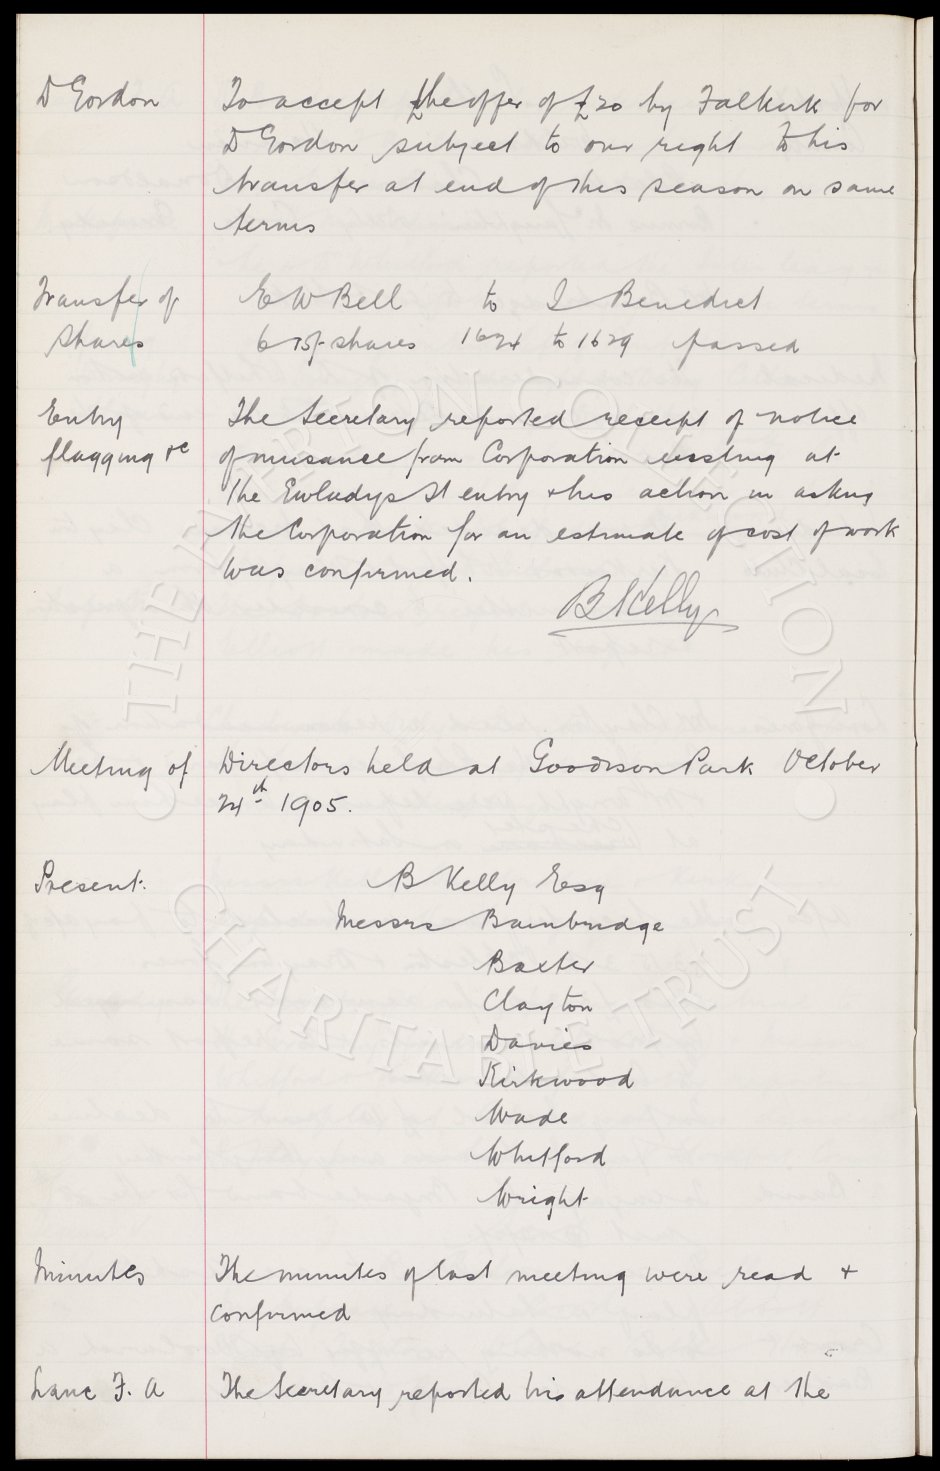 D Gordon To accept the offer of £20 by Falkirk for
D Gordon subject to our right to his
transfer at end of this season on same
terms
Transfer of E W Bell to I Benedict
Shares 6 15/- shares 1624 to 1629 passed
Entry The Secretary reported receipt of notice
flagging &c of nuisance from Corporation existing at
the Gwladys St entry & his action in asking
the Corporation for an estimate of cost of work
was confirmed.
B Kelly
Meeting of Directors held at Goodison Park October
24th 1905.
Present. B Kelly Esq
Messrs Bainbridge
Baxter
Clayton
Davies
Kirkwood
Wade
Whitford
Wright
Minutes The minutes of last meeting were read +
confirmed
Lanc F. A The Secretary reported his attendance at the
THE EVERTON COLLECTION
CHARITABLE TRUST